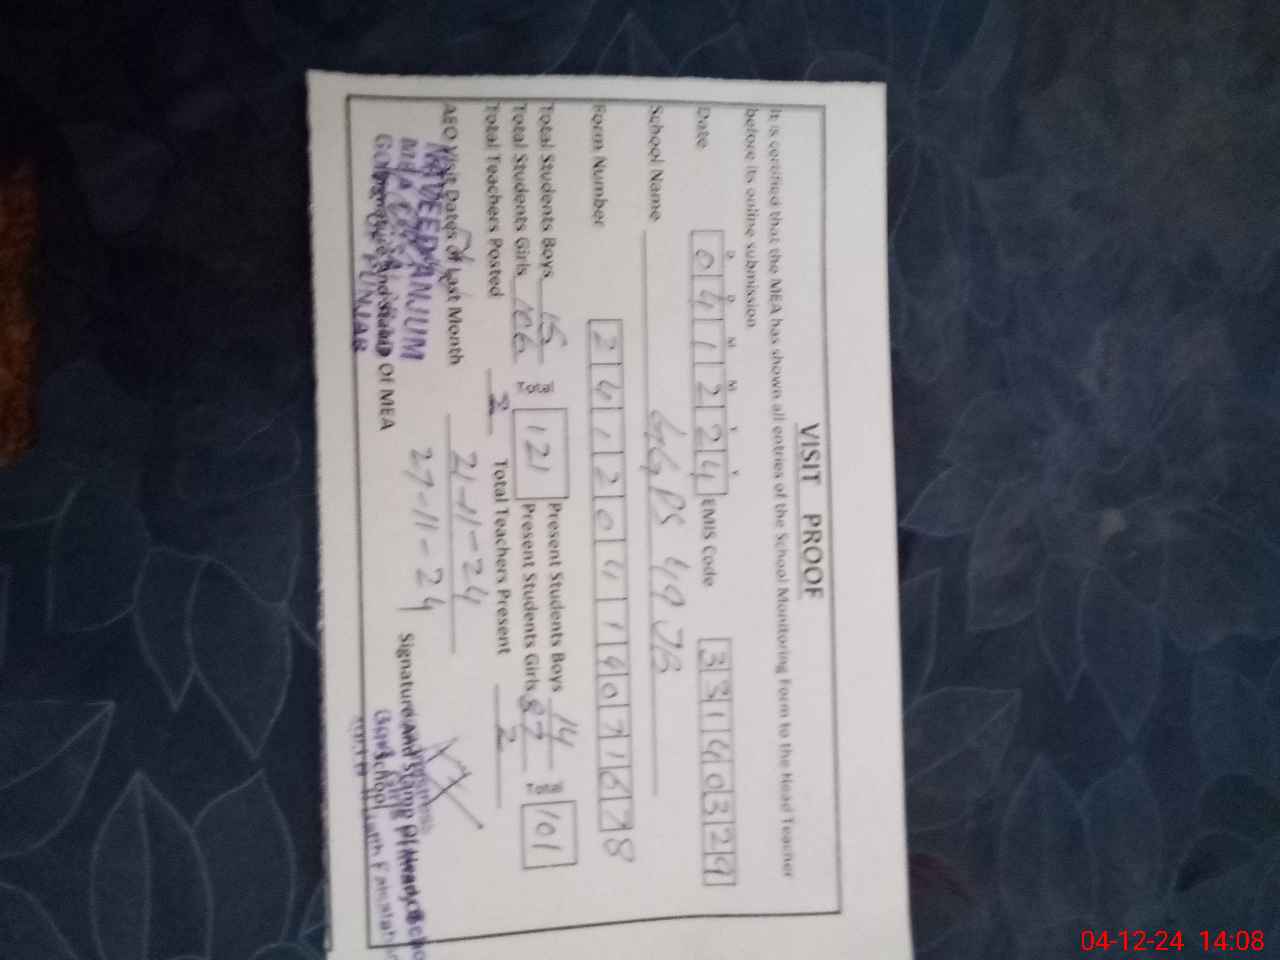 VISIT PROOF
It is certified that the MEA has shown all entries of the School Monitoring Form to the Head Teacher
before its online submission
D D M M Y Y
Date 041224 EMIS Code 33140329
School Name GGPS 49 JB
Form Number 2412041140716
Total Students Boys 15 Present Students Boys 14
Total Students Girls 106 121 Present Students Girls 87 101
Total Teachers Posted 2 Total Teachers Present 2
AEO Visit Dates Of Last Month 21-11-24
27-11-24
NAVEED ANJUM
MEA
Signature and Stamp Of MEA
PUNJAB
Signature And Stamp Of Head
School
04-12-24 14:08